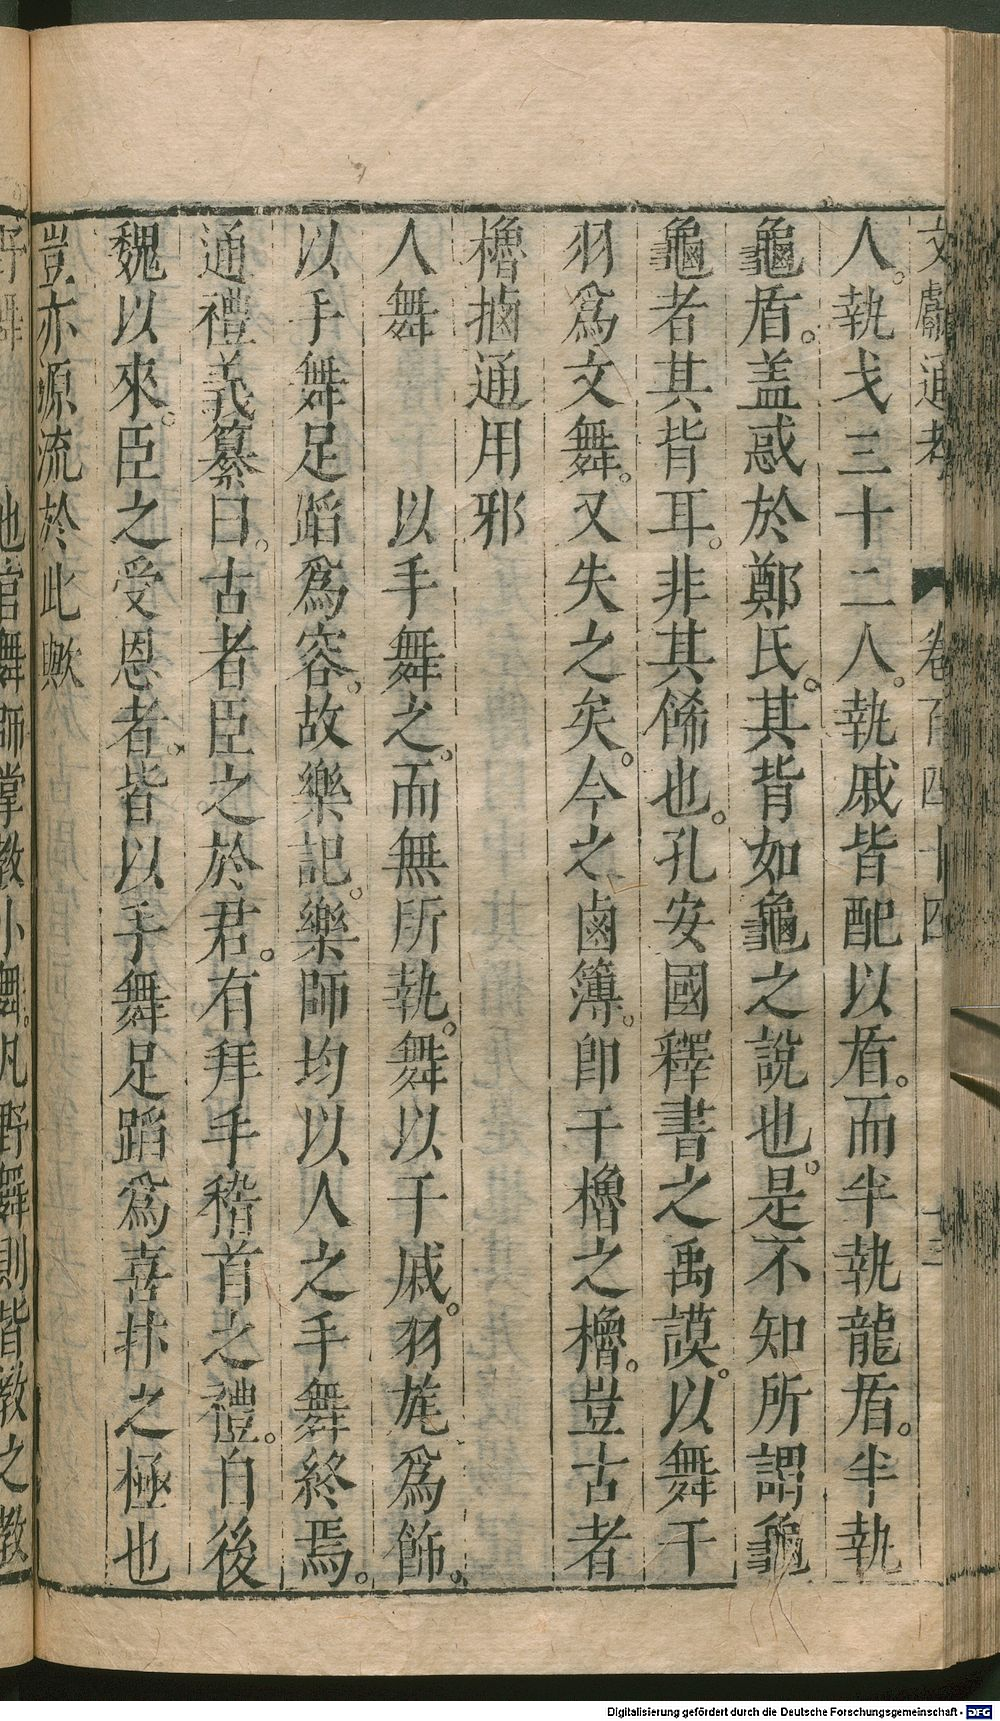 文獻通考 卷百四十四 十三
人。執戈三十二人。執戚皆配以盾。而半執龍盾。半執
龜盾。盖惑於鄭氏。其背如龜之說也。是不知所謂龜
龜者其背耳。非其餙也。孔安國釋書之禹謨。以舞干
羽爲文舞。又失之矣。今之鹵簿。卽干櫓之櫓。豈古者
櫓揗通用邪
人舞 以手舞之。而無所執。舞以干戚。羽旄爲飾。
以手舞足蹈爲容。故樂記。樂師均以人之手舞終焉。
通禮義纂曰。古者臣之於君。有拜手稽首之禮。自後
魏以來。臣之受恩者。皆以手舞足蹈爲喜抃之極也
豈亦源流於此歟
野舞 地官舞師掌教小舞。凡野舞則皆教之教